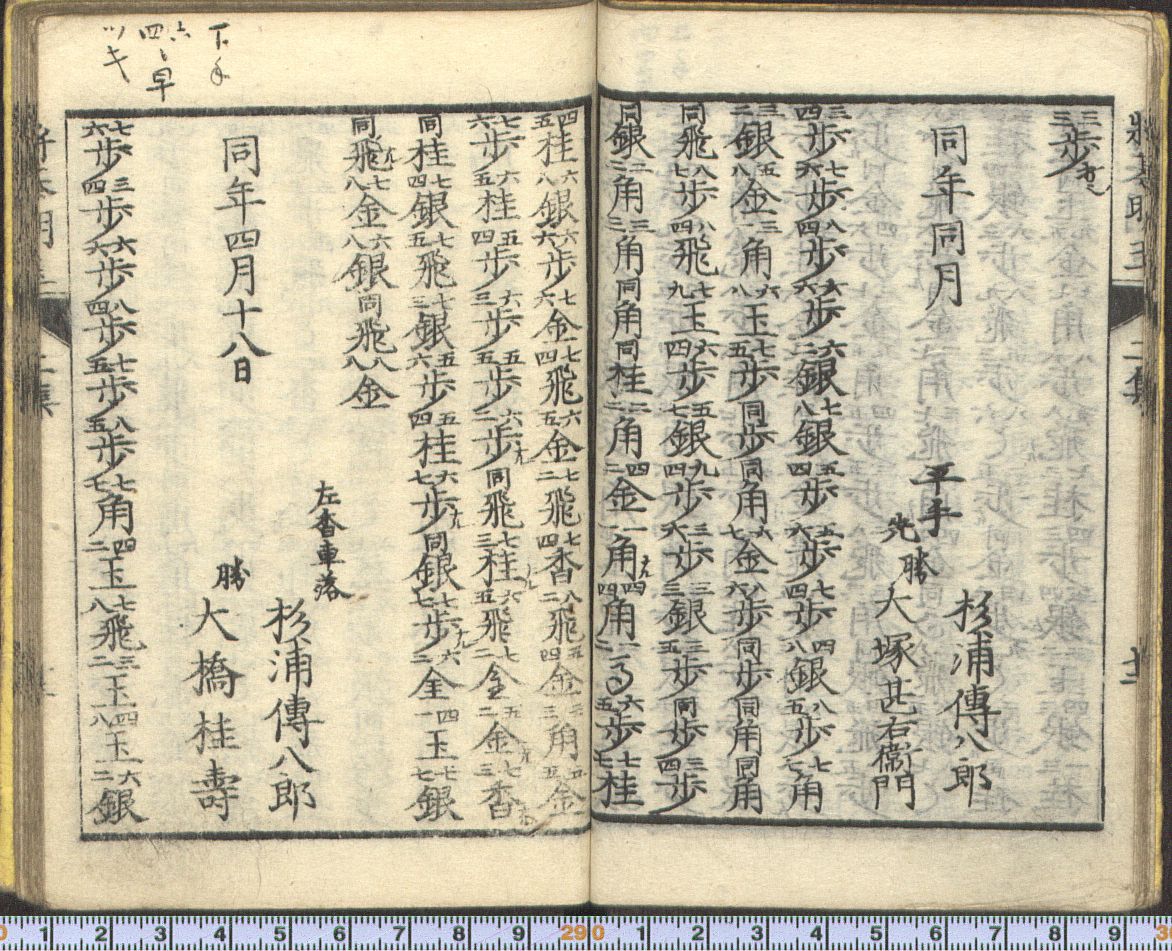 三三歩
同年同月
平手 杉浦傳八郎
先勝 大塚甚右衛門
三四歩 七六歩 八四歩 六六歩 六二銀 七八銀 五四歩 五六歩 七四歩 四八銀 八五歩 七七角
三二銀 五八金 三一角 六八玉 七五歩 同歩 同角 六七金 八六歩 同歩 同角 同角
同飛 八七歩 八四飛 七九玉 六四歩 五七銀 九四歩 三六歩 三三銀 三五歩 同歩 三四歩
同銀 二二角 三三角 同角 同桂 二二角 四二金 一一角成 四四角 一二馬 六五歩 七七桂
四五桂 六八銀 六六歩 七六金 七四飛 六五金 七二飛 七四香 八二飛 五四金 二三角 五五金
七六歩 六五桂 五四歩 六三歩 五五歩 六二歩成 同飛 七三桂成 六五飛 七二金 五二金 七三香成
同桂 七四銀 七五飛 七三銀 五六歩 五四桂 六七歩成 同銀 七七歩成 六二全 四一玉 七七銀
同飛成 七八金 六八銀 同飛 八八金
同年四月十八日
左香車落 杉浦傳八郎
勝 大橋桂壽
七六歩 三四歩 六六歩 八四歩 七五歩 八五歩 七七角 四二玉 七八飛 三二玉 四八玉 六二銀
下手
ツキ